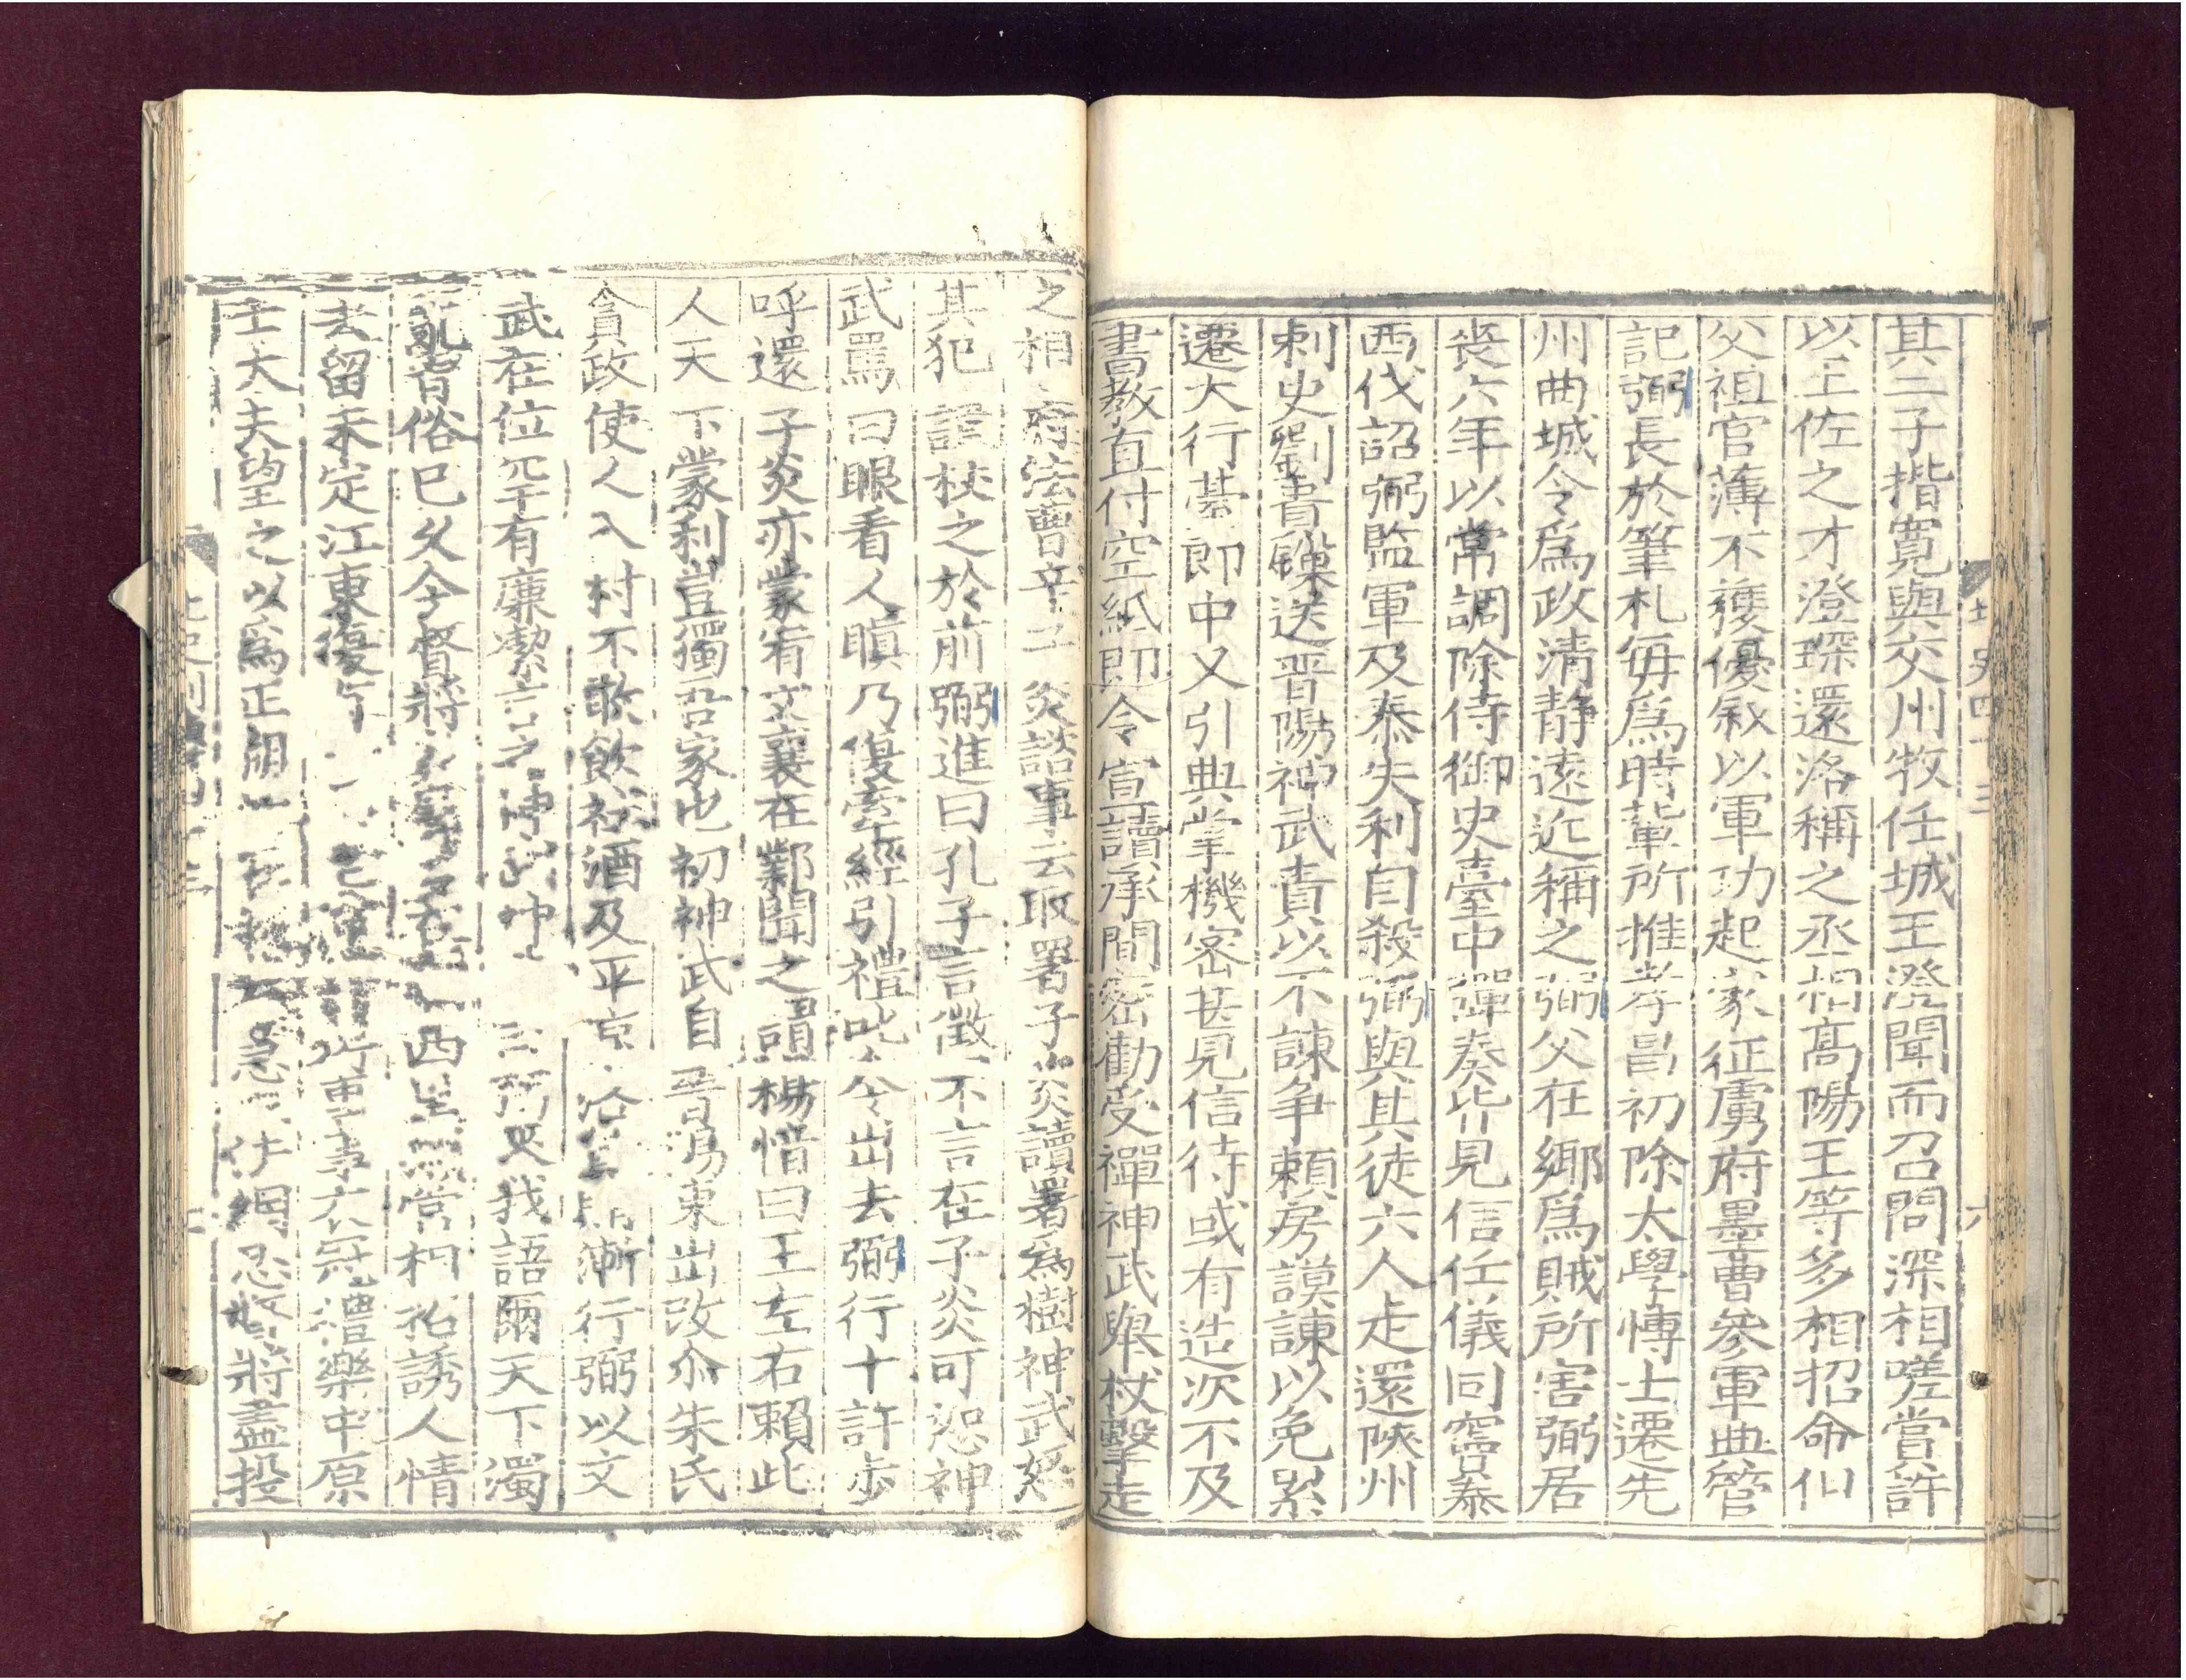 其二子揩寬與交州牧任城王澄聞而召問深相嗟賞許
以王佐之才澄琛還洛稱之丞相高陽王等多相招命似
父祖官薄不獲優叙以軍功起家征虜府墨曹參軍典管
記弼長於筆札每爲時輩所推孝昌初除太學愽士遷先
州曲城令爲政清靜遠近稱之弼父在鄉爲賊所害弼居
喪六年以常調除侍御史臺中彈奏皆見信任儀同竇泰
西伐詔弼監軍及泰失利自殺弼與其徒六人走還陝州
刺史劉貴鏁送晋陽神武責以不諫争賴房謨諫以免累
遷大行臺郎中又引典掌機密甚見信待或有造次不及
書教直付空紙即令宣讀承間密勸受禪神武舉杖擊走
之相府法曹辛子炎諮事云取署子炎讀署爲樹神武怒
其犯諱杖之於前弼進曰孔子言徵不言在子炎可恕神
武罵曰眼看人瞋乃復牽經引禮叱令出去弼行十許步
呼還子炎亦蒙宥文襄在鄴聞之謂楊愔曰王左右賴此
人天下蒙利豈獨吾家也初神武自晋陽東出改尒朱氏
貪政使人入村不敢飲社酒及平京洛 漸行弼以文
武在位罕有廉潔言之神武神 我語爾天下濁
亂習俗已久今督將 西 常相招誘人情
去留未定江東復有 事衣冠禮樂中原
士大夫望之以爲正朔 急 作網 恐督將盡投
北史四十三 六
北史列傳四十三